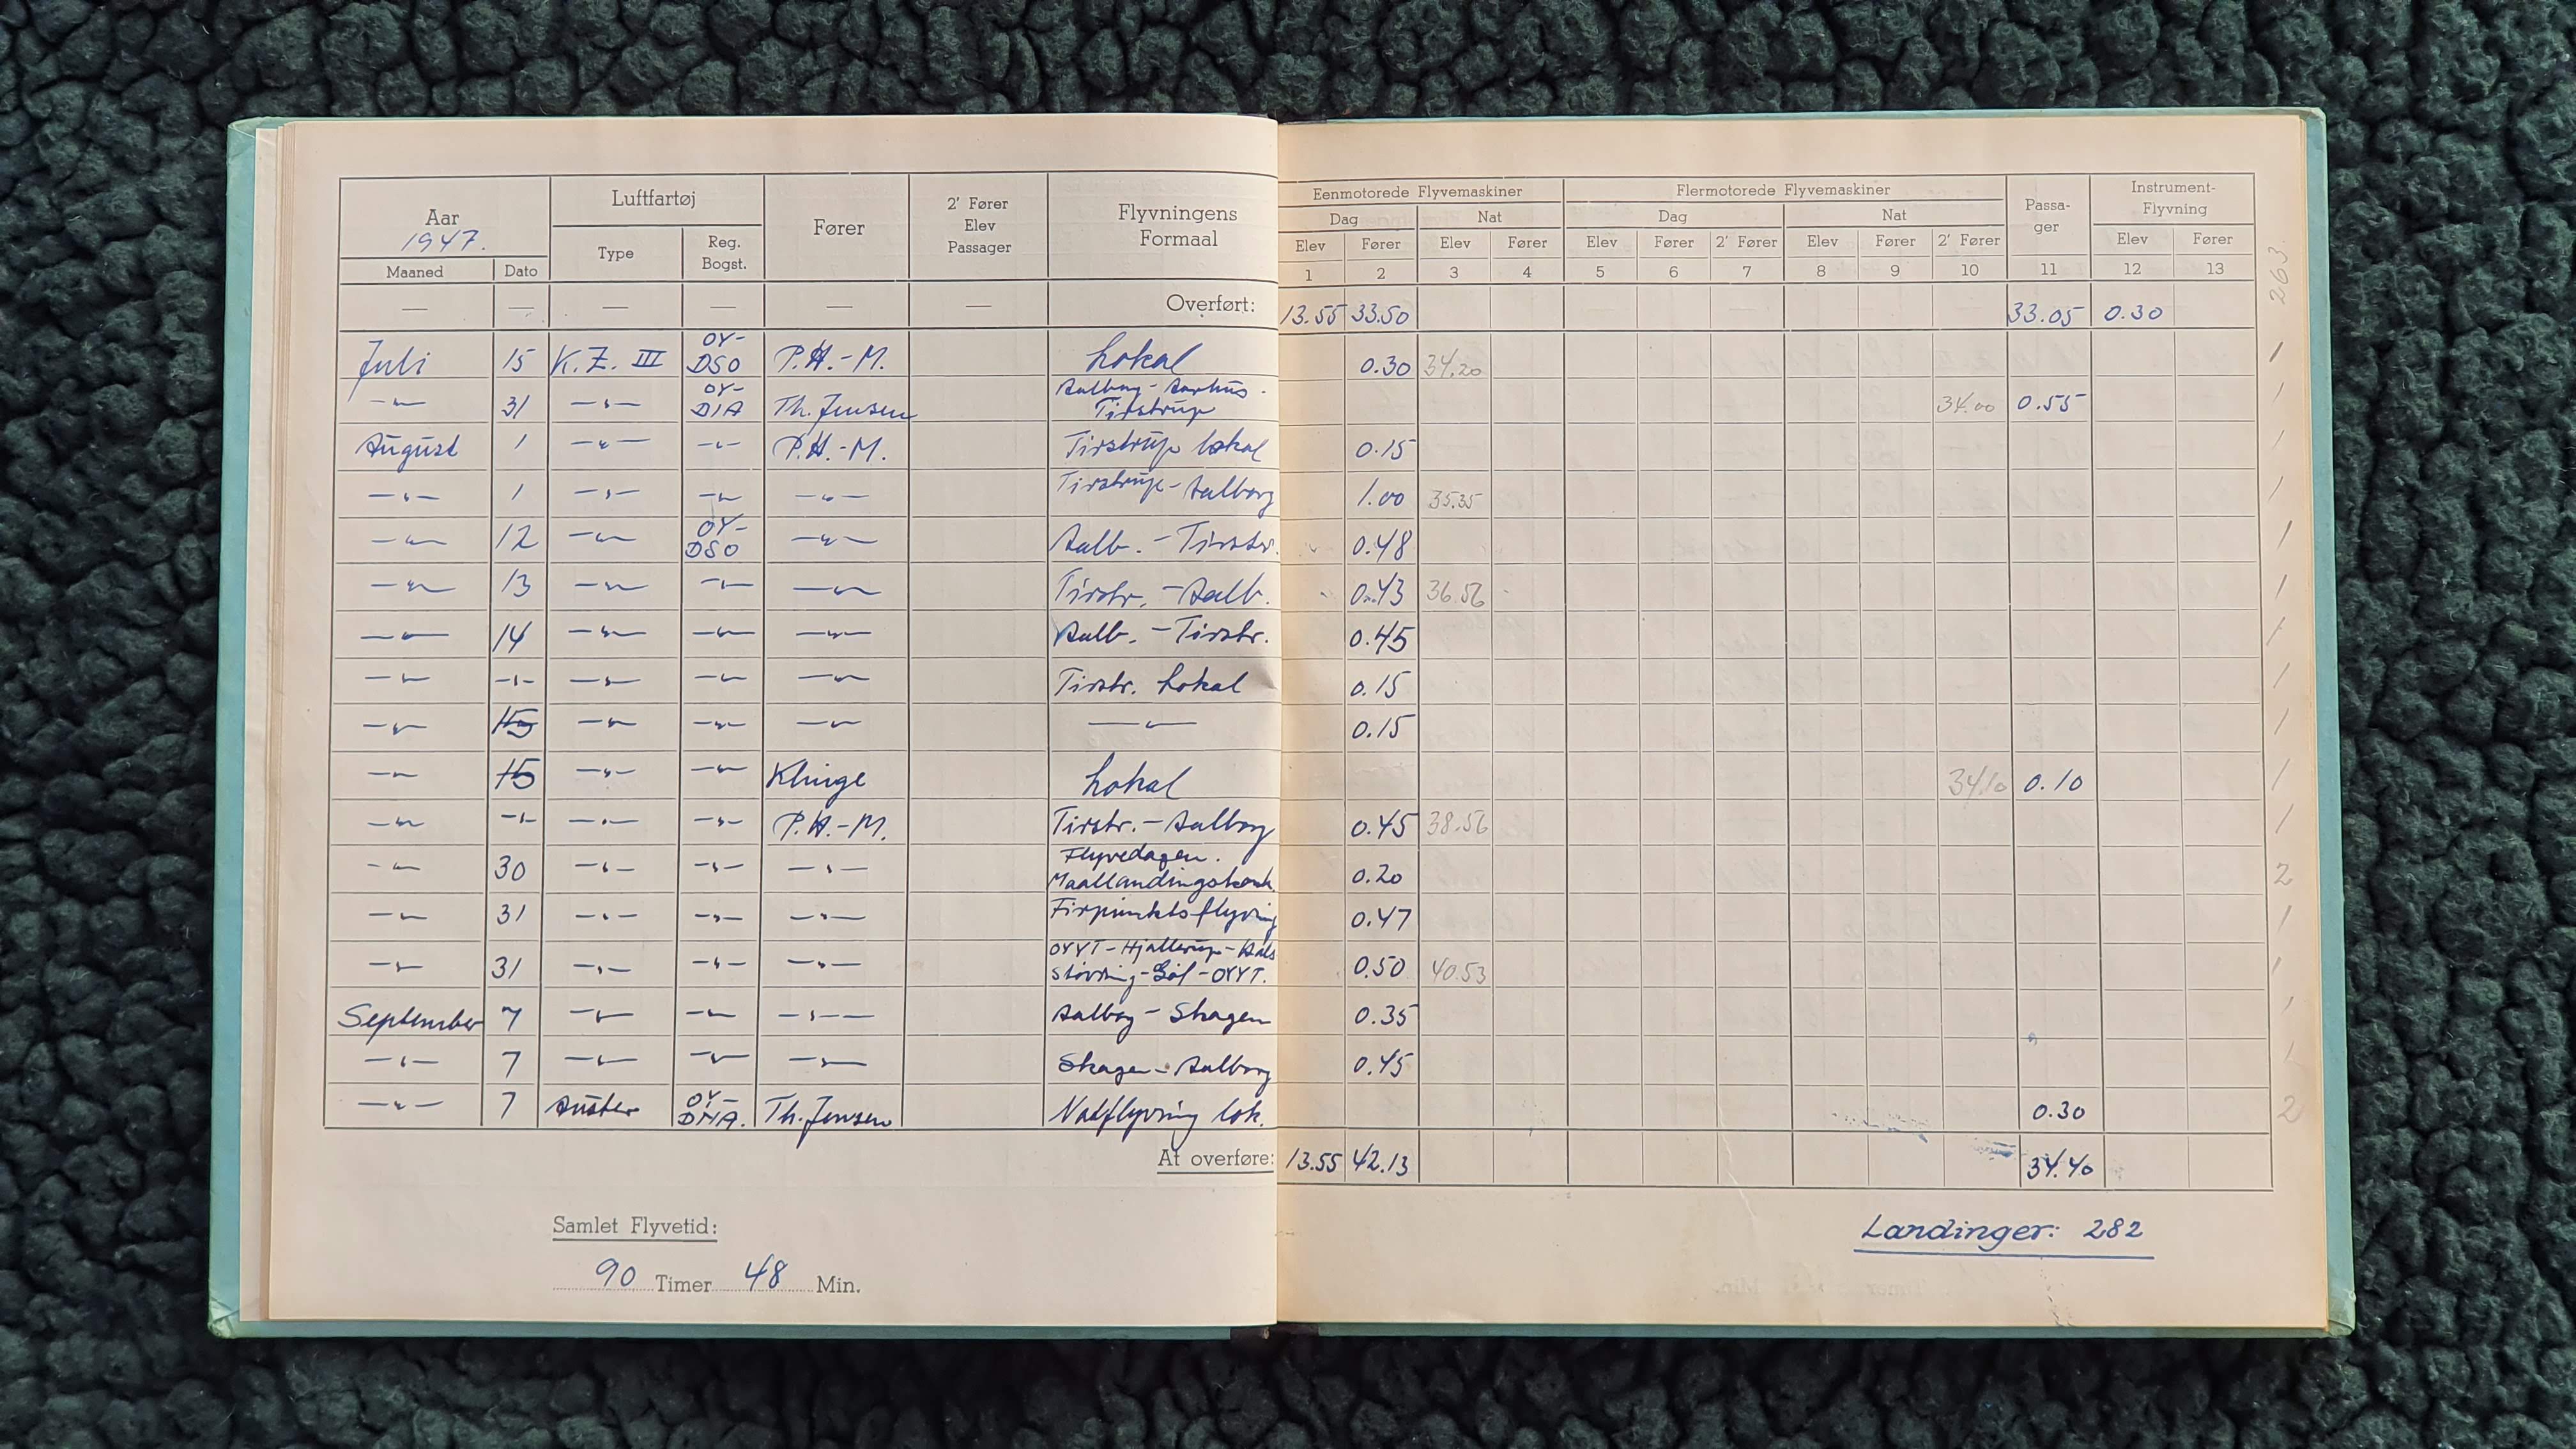 Aar
1947.
Maaned Dato
Luftfartøj
Type
Reg.
Bogst.
Fører
2' Fører
Elev
Passager
Flyvningens
Formaal
Eenmotorede Flyvemaskiner
Dag Nat
Elev Fører Elev Fører
Flermotorede Flyvemaskiner
Dag Nat
Elev Fører 2' Fører Elev Fører 2' Fører
Passa-
ger
Instrument-
Flyvning
Elev Fører
1 2 3 4 5 6 7 8 9 10 11 12 13
— — — — — — Overført: 13.55 33.50 33.05 0.30 263.
Juli 15 K.Z. III OY-DSO P.H.-M. Lokal 0.30 34.20 1
—"— 31 —"— OY-DIA Th. Jensen Aalborg - Aarhus - Tirstrup 34.00 0.55 1
August 1 —"— —"— P.H.-M. Tirstrup lokal 0.15 1
—"— 1 —"— —"— —"— Tirstrup - Aalborg 1.00 35.35 1
—"— 12 —"— OY-DSO —"— Aalb. - Tirstr. 0.48 1
—"— 13 —"— —"— —"— Tirstr. - Aalb. 0.43 36.56 1
—"— 14 —"— —"— —"— Aalb. - Tirstr. 0.45 1
—"— —"— —"— —"— —"— Tirstr. Lokal 0.15 1
—"— 15 —"— —"— —"— —"— 0.15 1
—"— 15 —"— —"— Klinge Lokal 34.10 0.10 1
—"— —"— —"— —"— P.H.-M. Tirstr. - Aalborg 0.45 38.56 1
—"— 30 —"— —"— —"— Flyvedagen. Maallandingskonk. 0.20 2
—"— 31 —"— —"— —"— Firpunktsflyvning 0.47 1
—"— 31 —"— —"— —"— OYYT - Hjallerup - Hals Støvring - Gøl - OYYT. 0.50 40.53 1
September 7 —"— —"— —"— Aalborg - Skagen 0.35 1
—"— 7 —"— —"— —"— Skagen - Aalborg 0.45 1
—"— 7 Auster OY-DNA. Th. Jensen Natflyvning lok. 0.30 2
At overføre: 13.55 42.13 34.40
Samlet Flyvetid:
90 Timer 48 Min.
Landinger: 282